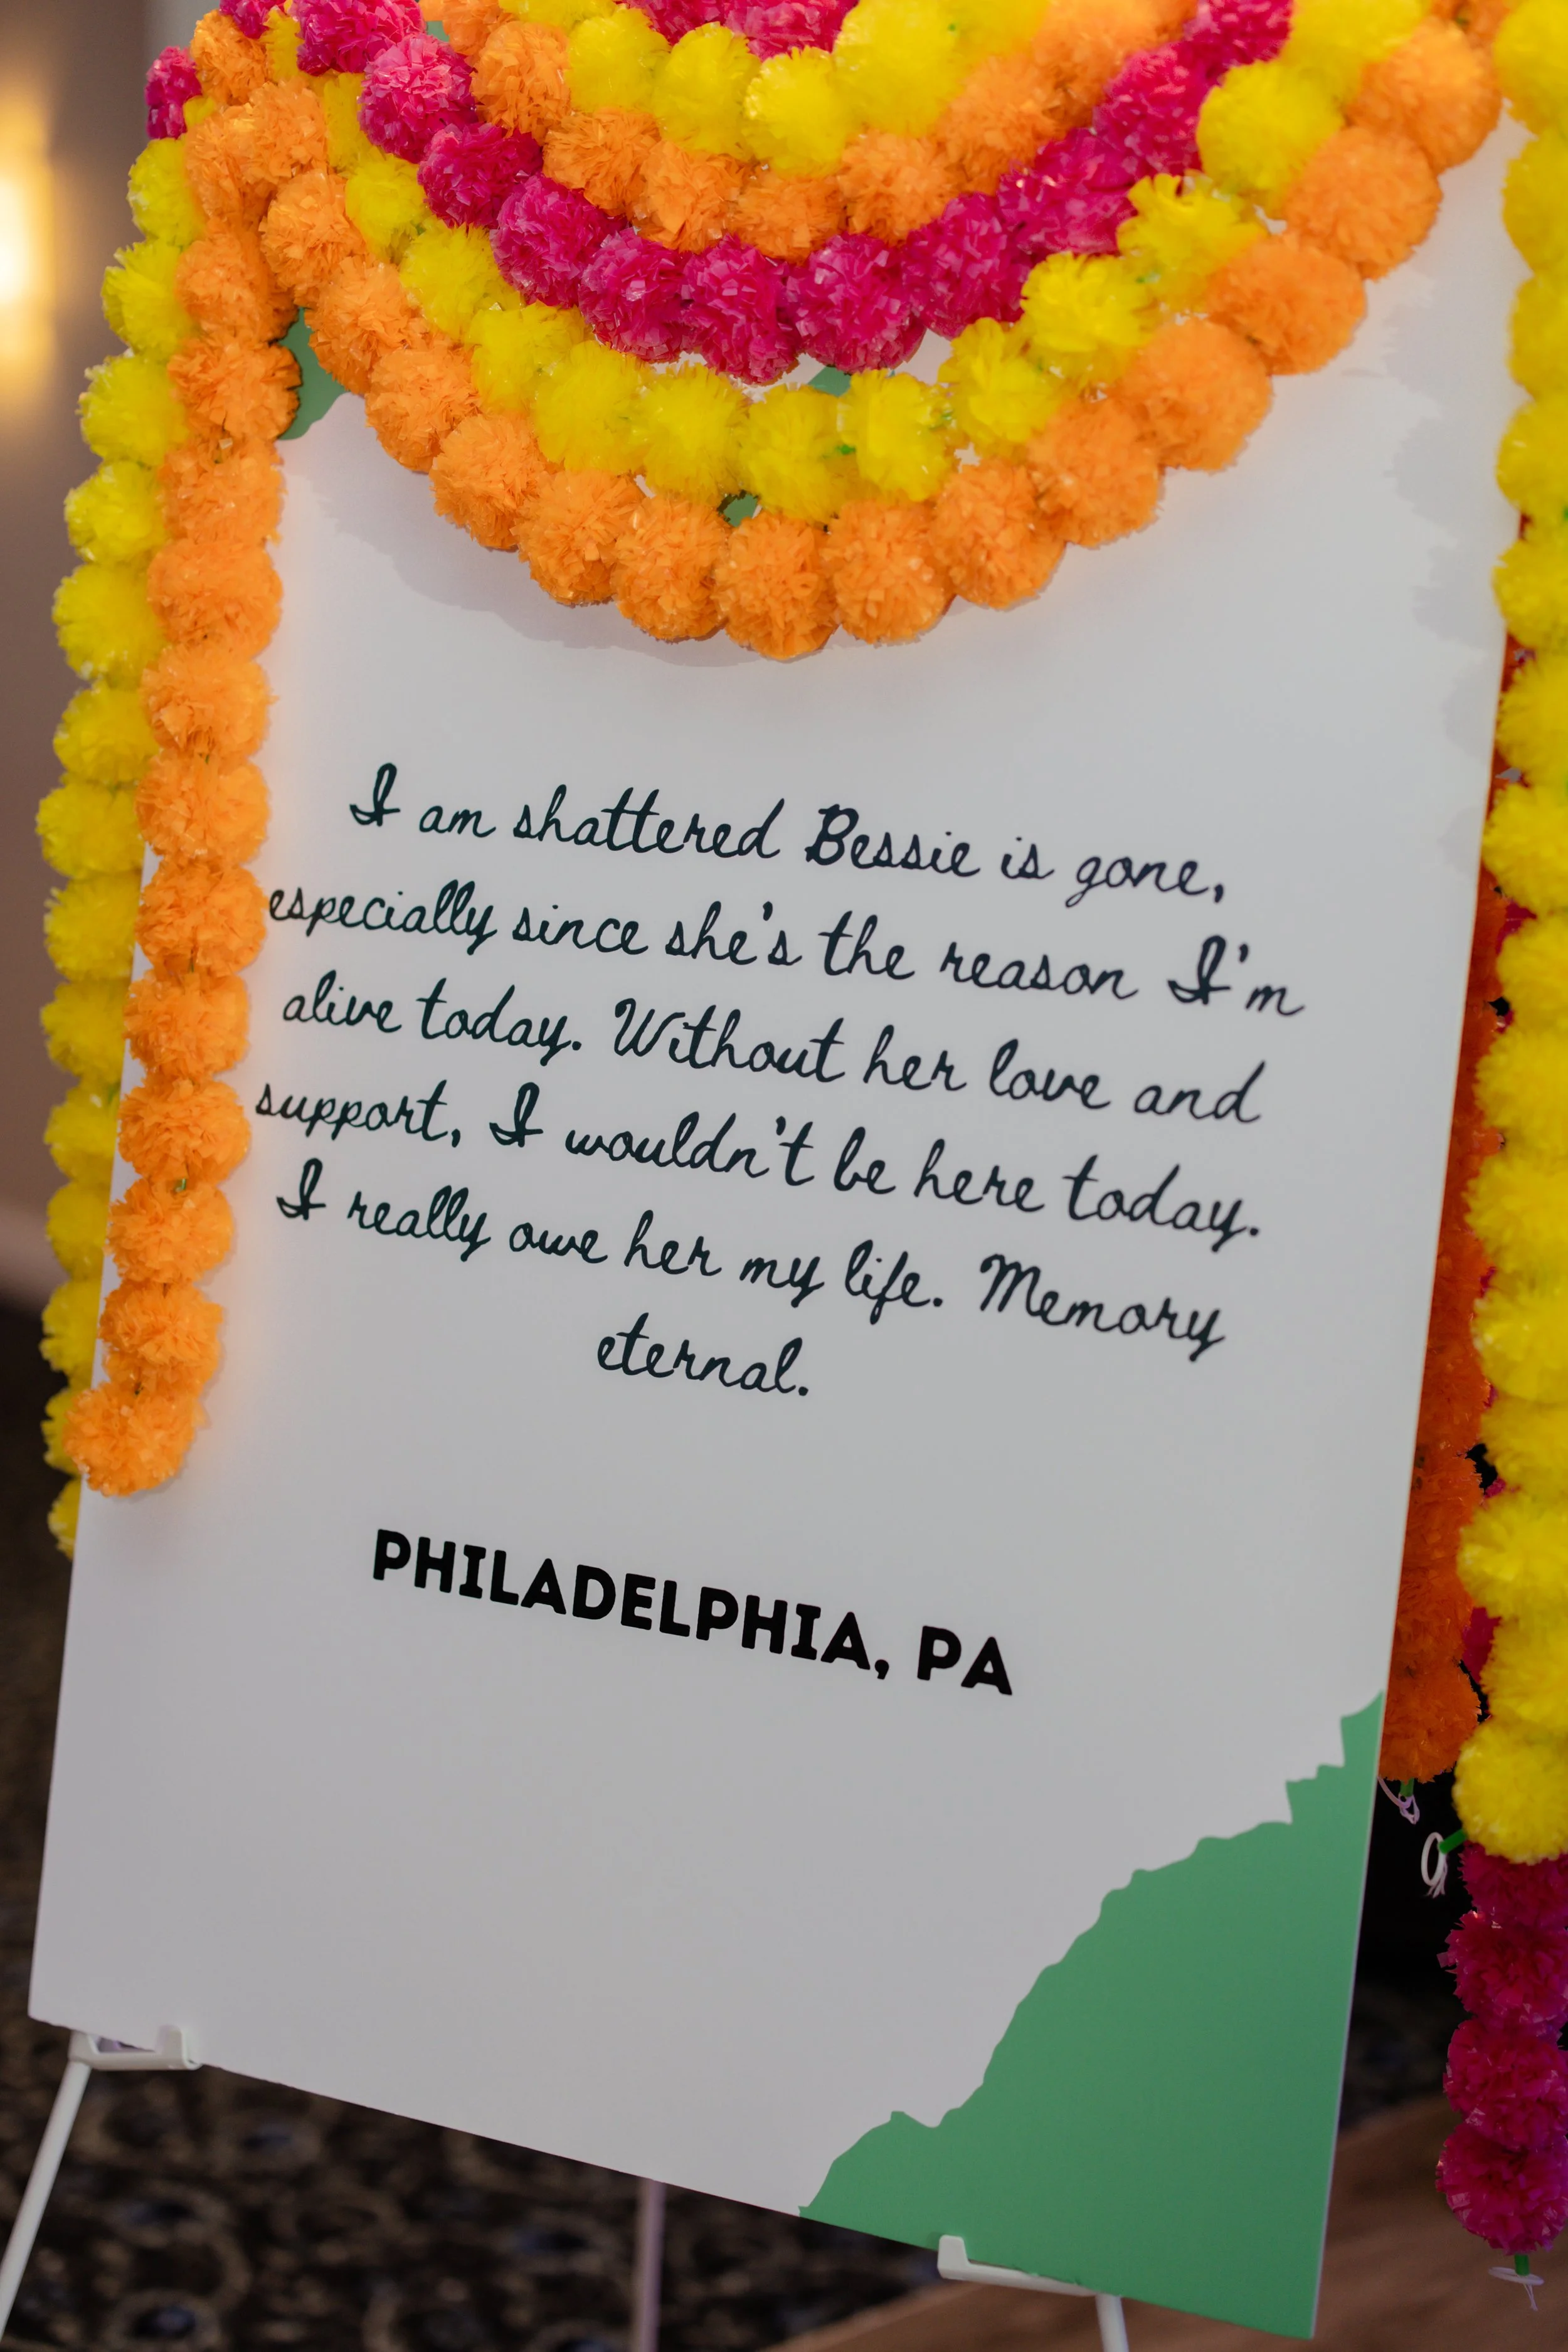 I am shattered Bessie is gone,
especially since she's the reason I'm
alive today. Without her love and
support, I wouldn't be here today.
I really owe her my life. Memory
eternal.
PHILADELPHIA, PA